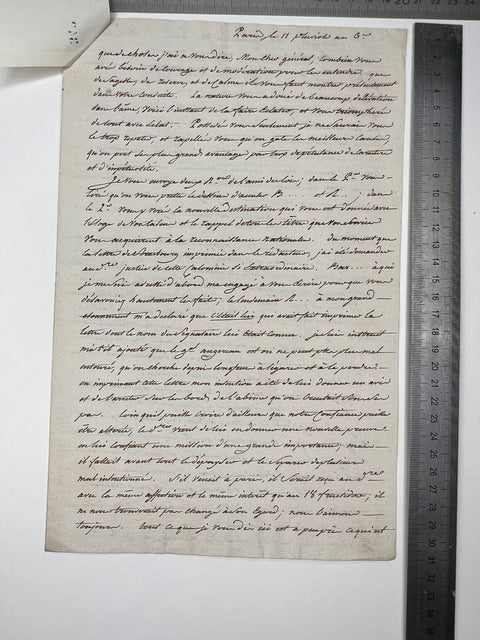 Paris le 11 pluviose an 6e
que de choses j'ai a vous dire, Mon cher général, combien vous
avés besoin de courage et de moderation pour les entendre, que
de sagesse, de reserve, et de calme il vous faut mettre présentement
dans votre conduite. La nature vous a donné beaucoup d'élévation
dans l'ame, voici l'instant de la faire éclater, et vous triompherés
de tout avec éclat. Possedé vous seulement je ne saurais vous
le trop repeter, et rappellé vous qu'on gate les meilleures causes,
qu'on perd les plus grands avantages par trop de
et d'impétuosité.
Je vous envoye deux nos de l'ami des loix; dans le 1er vous
qu'on vous prette le dessein d'aculer B. . . . et R. . .; dans
le 2e vous y verré la nouvelle destination qui vous est donnée avec
Eloge de vos talens et le rappel de tous les titres que vos services
vous acquierent a la reconnaissance nationale. Du moment que
la lettre de imprimée dans le rédacteur, j'ai été demander
au dre justice de cette calomnie si extraordinaire. Bar... a qui
je me suis adressé d'abord m'a engagé a vous écrire pour que vous
désavouiez hautement le fait; le lendemain R... a mon grand
étonnement m'a declaré que c'était lui qui avait fait imprimer la
lettre dont le nom du signataire lui était connu. je suis instruit
m'a t'il ajouté que le gal augereau est on ne peut pas plus mal
entouré, qu'on cherche depuis longtems a l'égarer et a le perdre:
en imprimant cette lettre mon intention a été de lui donner un avis
et de l'arreter sur le bord de l'abime qu'on creusait sous les
pas. loin qu'il puisse croire d'ailleurs que notre confiance puisse
être alterée, le dre vient de lui en donner une nouvelle preuve
en lui confiant une mission d'une grande importance; mais
il fallait avant tout le dépayser et le séparer de plusieurs
mal intentionnés. S'il venait a paris, il serait reçu au dre
avec la même affection et le même interet qu'au 18 fructidor; il
ne nous trouverait pas changé a son egard; nous l'aimons
toujours. tout ce que je vous dis ici est a peu près ce qui m'